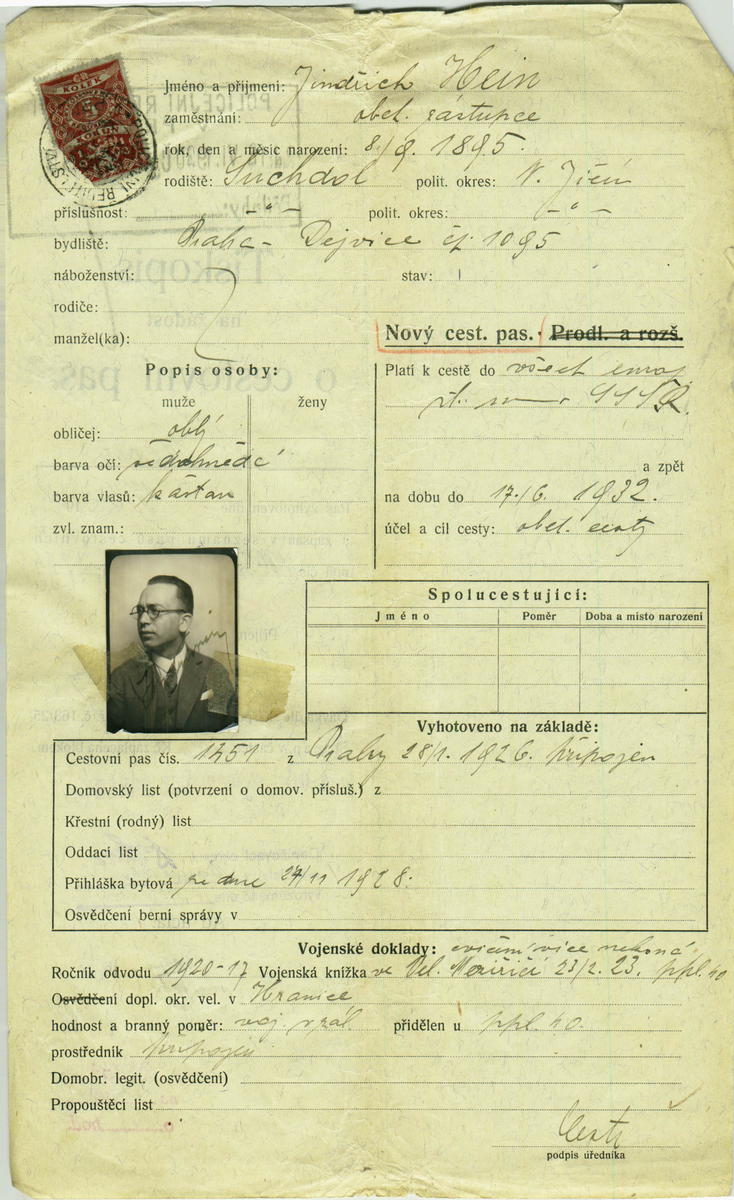 KOLEK
Jméno a přijmení: Jindřich Hein
zaměstnání: obch. zástupce
rok, den a měsíc narození: 8./9. 1895.
rodiště: Suchdol polit. okres: N. Jičín
příslušnost: -"- polit. okres: -"-
bydliště: Praha - Dejvice čp. 1095
náboženství: stav:
rodiče:
manžel(ka):
Nový cest. pas. · Prodl. a rozš.
Popis osoby:
muže ženy
obličej: oblý
barva očí:
barva vlasů: kaštan
zvl. znam.:
Platí k cestě do všech
SSSR.
a zpět
na dobu do 17./6. 1932.
účel a cíl cesty: obch. cesty
Spolucestující:
Jméno Poměr Doba a místo narození
Vyhotoveno na základě:
Cestovní pas čís. 1451 z Prahy 28/1. 1926. připojen
Domovský list (potvrzení o domov. přísluš.) z
Křestní (rodný) list
Oddací list
Přihláška bytová ze dne 27/11 1928.
Osvědčení berní správy v
Vojenské doklady: cvičení více nekoná
Ročník odvodu 1920-17 Vojenská knížka ve Vel. Meziříčí 23/2. 23. ppl. 40
Osvědčení dopl. okr. vel. v Hranice
hodnost a branný poměr: voj. v zál. přidělen u ppl. 40.
prostředník připojen
Domobr. legit. (osvědčení)
Propouštěcí list
podpis úředníka